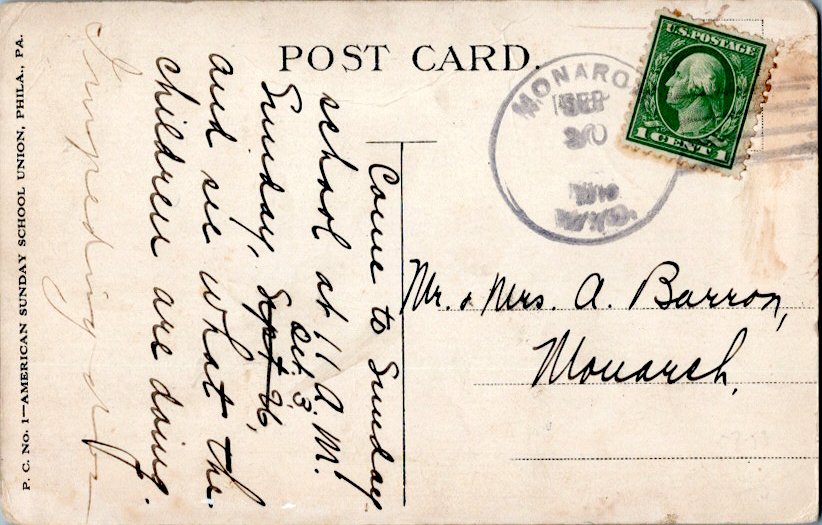 POST CARD.
MONARCH
SEP
30
U.S. POSTAGE
1 CENT 1
Come to Sunday
school at 11 A.M.
Sunday, Sept 26,
Oct 3,
and see what the
children are doing.
Mr. & Mrs. A. Barron,
Monarch,
P. C. No. 1—AMERICAN SUNDAY SCHOOL UNION, PHILA., PA.